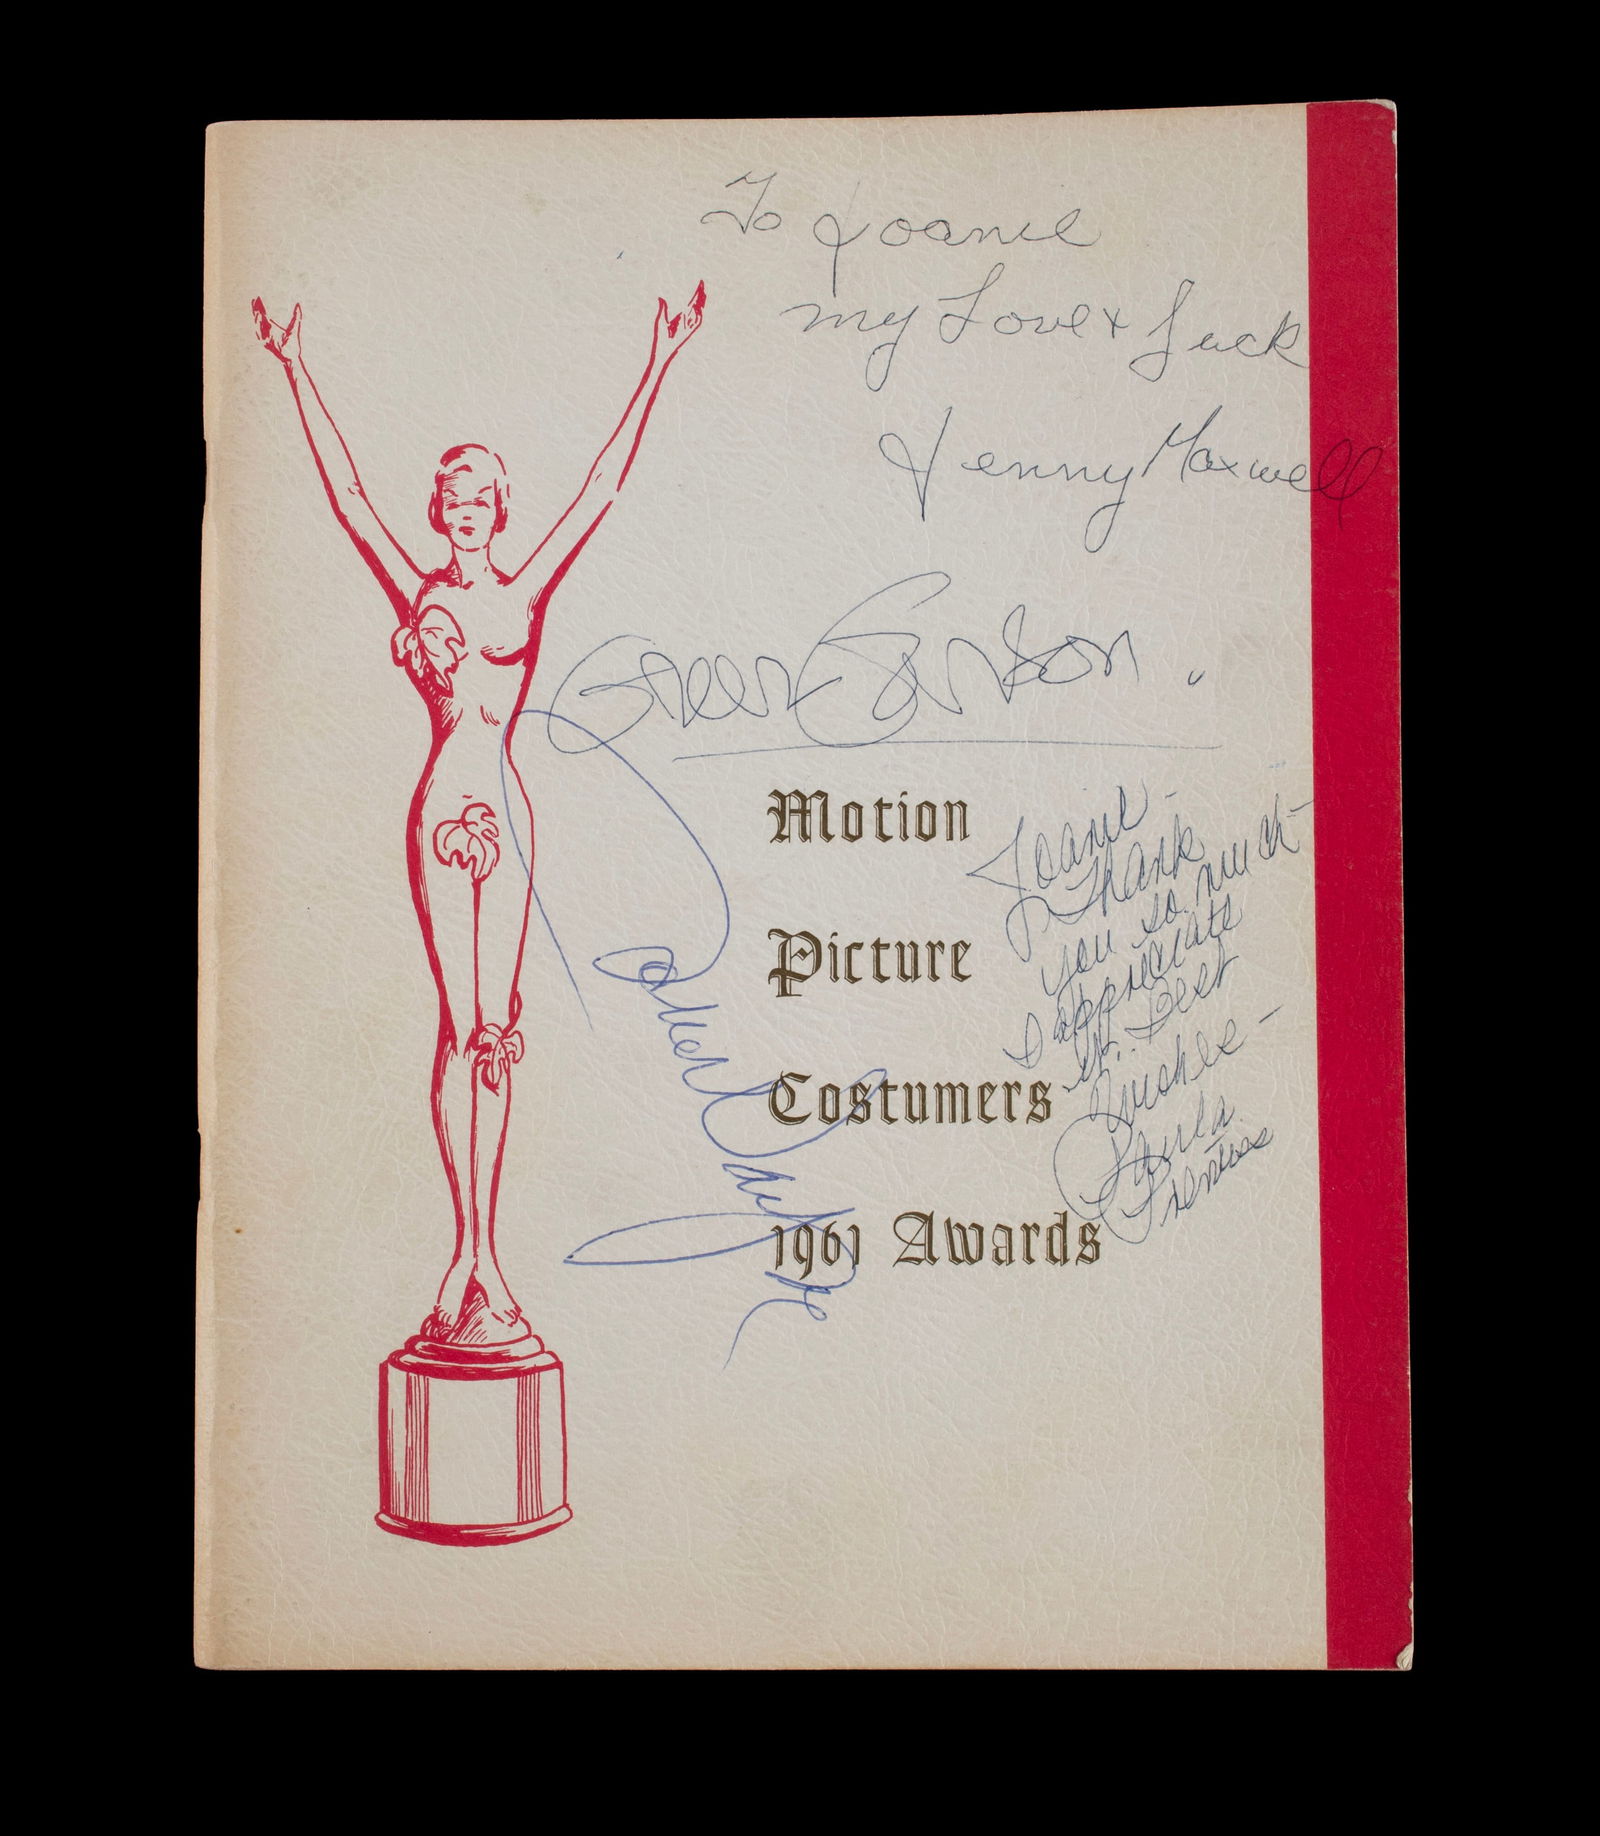 To Joanie
my Love & Luck
Jenny Maxwell
Greer Garson
Motion
Picture
Costumers
1961 Awards
Joanie -
Thank
you so much -
I appreciate
it. Best
Wishes -
Paula
Prentiss